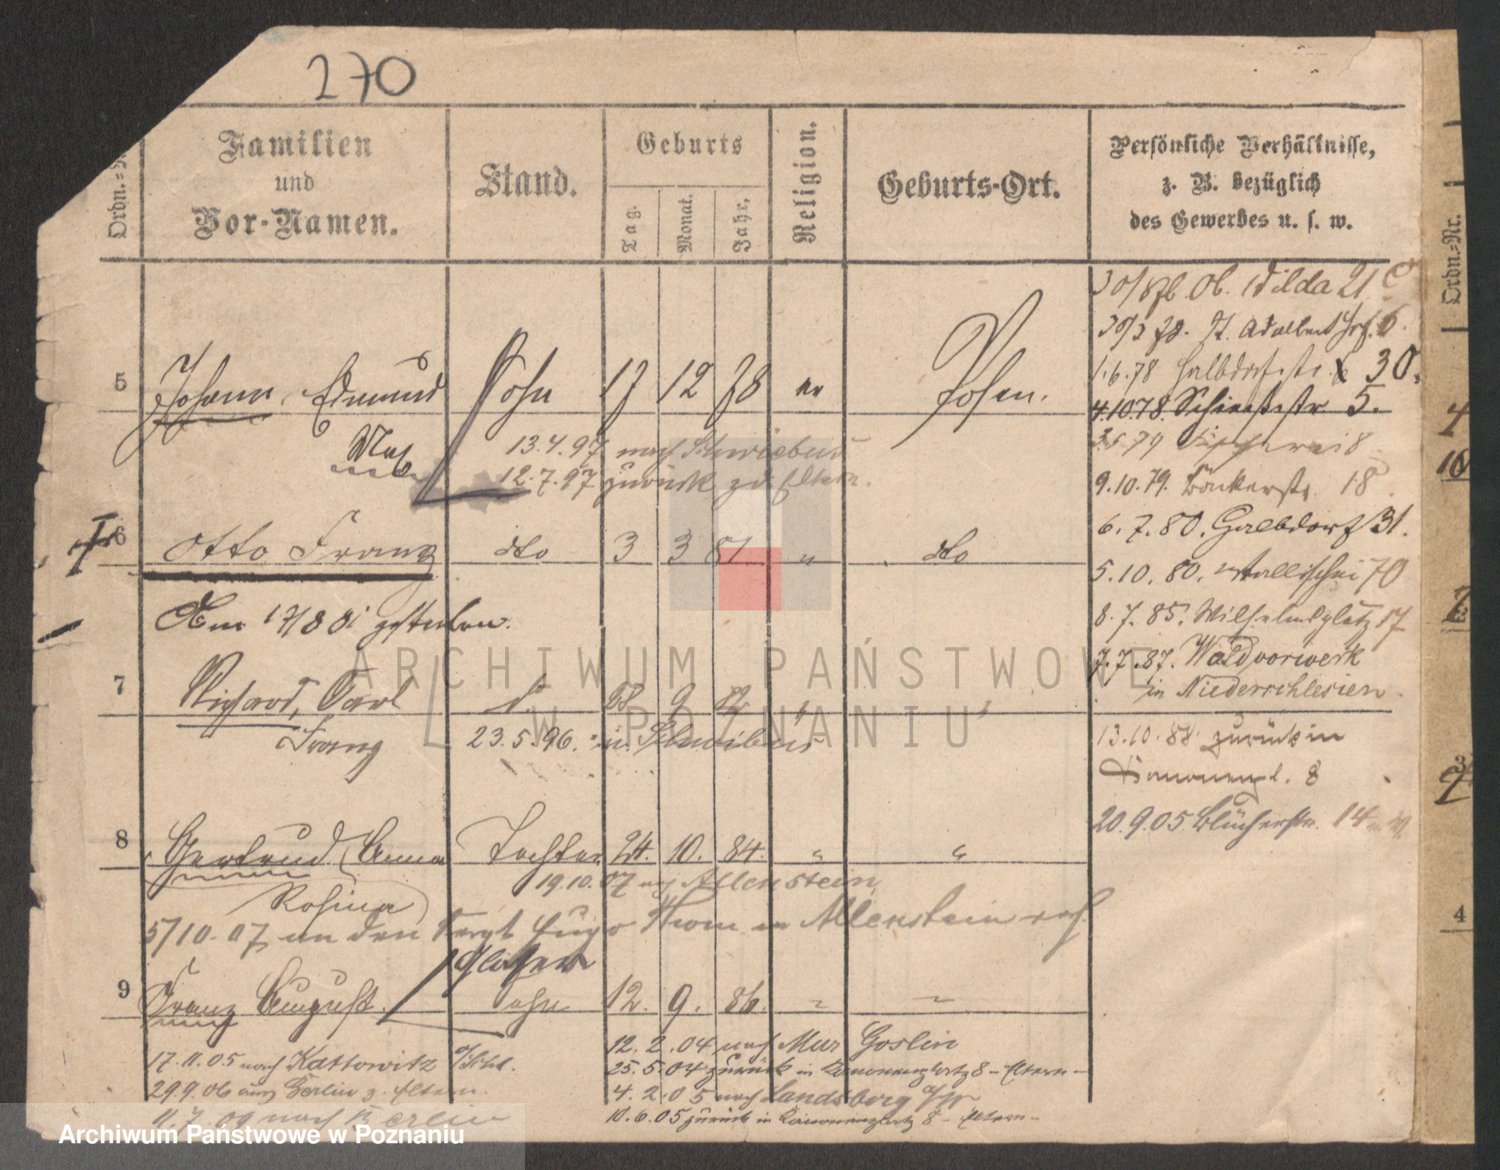 270
Ordn.=Nr.
Familien und Vor-Namen.
Stand.
Geburts
Tag.
Monat.
Jahr.
Religion.
Geburts-Ort.
Persönliche Verhältnisse, z. B. bezüglich des Gewerbes u. s. w.
Ordn.=Nr.
5 Johann, Edmund Sohn 17 12 78 Posen.
13.4.97 nach Schwiebus
12.7.97 zurück zu Eltern.
6 Otto Franz dto 3 3 81 " dto
Am 17/8 81 gestorben.
7 Richard, Carl 9
Franz 23.5.96. in Schwiebus
8 Gertrud Anna Tochter 24. 10. 84. " "
Rosina 19.10.07 nach Allenstein
5/10.07 an den Sergt Hugo Thom in Allenstein
9 Franz August Sohn 12. 9. 86. " "
17.11.05 nach Kattowitz
29.9.06 aus Berlin z. Eltern.
nach Berlin
12.2.04 nach Mur Goslin
25.5.04 zurück in Kanonenplatz 8 – Eltern –
4.2.05 nach Landsberg
10.6.05 zurück in Kanonenplatz 8 – Eltern –
Ob. Wilda 21
St. Adalbert 6.
1.6.78 Halbdorfstr. 30.
4.10.78. Schiessstr 5.
79 Fischerei 8
9.10.79. Bäckerstr. 18.
6.7.80. Halbdorf 31.
5.10.80. Wallischei 70
8.7.85. Wilhelmsplatz 17
7.7.87. Waldvorwerk
in Niederschlesien.
13.10.88 zurück in
Kanonenpl. 8
20.9.05 Blücherstr. 14
4
10
2
3
4
ARCHIWUM PAŃSTWOWE
W POZNANIU
Archiwum Państwowe w Poznaniu